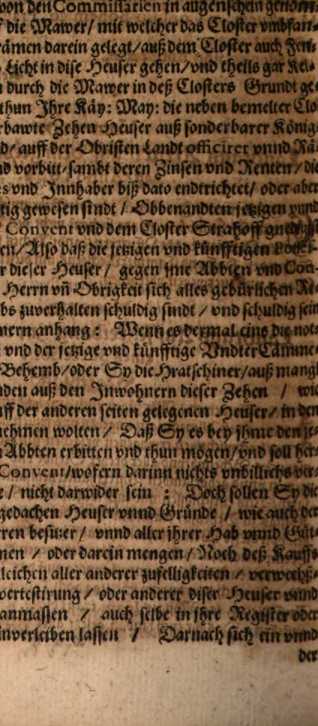 von den Commissarien in augenschein genom-
die Mawer/ mit welcher das Closter vmbfan-
rämen darein gelegt/ auß dem Closter auch Fen-
Liecht in dise Heuser gehen/ vnd theils gar Kel-
durch die Mawer in deß Closters Grundt ge-
thun Ihre Käy: May: die neben bemelter Clo-
bawte Zehen Heuser auß sonderbarer König-
d/ auff der Obristen Landt officiret vnnd Rä-
nd vorbitt/ sambt deren Zinsen vnd Renten/ die
vnd Innhaber biß dato endtrichtet/ oder aber
tig gewesen sindt / Obbenandten jetzigen vnnd
Convent vnd dem Closter Strahoff
en/ Also daß die jetzigen vnd künfftigen
dieser Heuser / gegen jme Abbten vnd Con-
Herrn vñ Obrigkeit sich alles gebürlichen
bs zuverhalten schuldig sindt / vnd schuldig sein
nern anhang : Wenn es dermal eins die not-
vnd der jetzige vnd künfftige VndterCämme-
Behemb/ oder Sy die Hratschiner/ auß mangl
nden auß den Inwohnern dieser Zehen / wie
uff der anderen seiten gelegenen Heuser/ in den
nehmen wolten / Daß Sy es bey jhme den je-
Abbten erbitten vnd thun mögen/ vnd soll her-
Convent/ wofern darinn nichts vnbillichs ver-
e / nicht darwider sein : Doch sollen Sy die
gedachen Heuser vnnd Gründe / wie auch der
ren besitzer / vnnd aller jhrer Hab vnnd Güt-
men / oder darein mengen/ Noch deß Kauffs
leichen aller anderer zufelligkeiten / verwechß-
vertestirung / oder anderer diser Heuser vnnd
anmassen / auch selbe in jhre Register oder
inverleiben lassen / Darnach sich ein vnnd
der